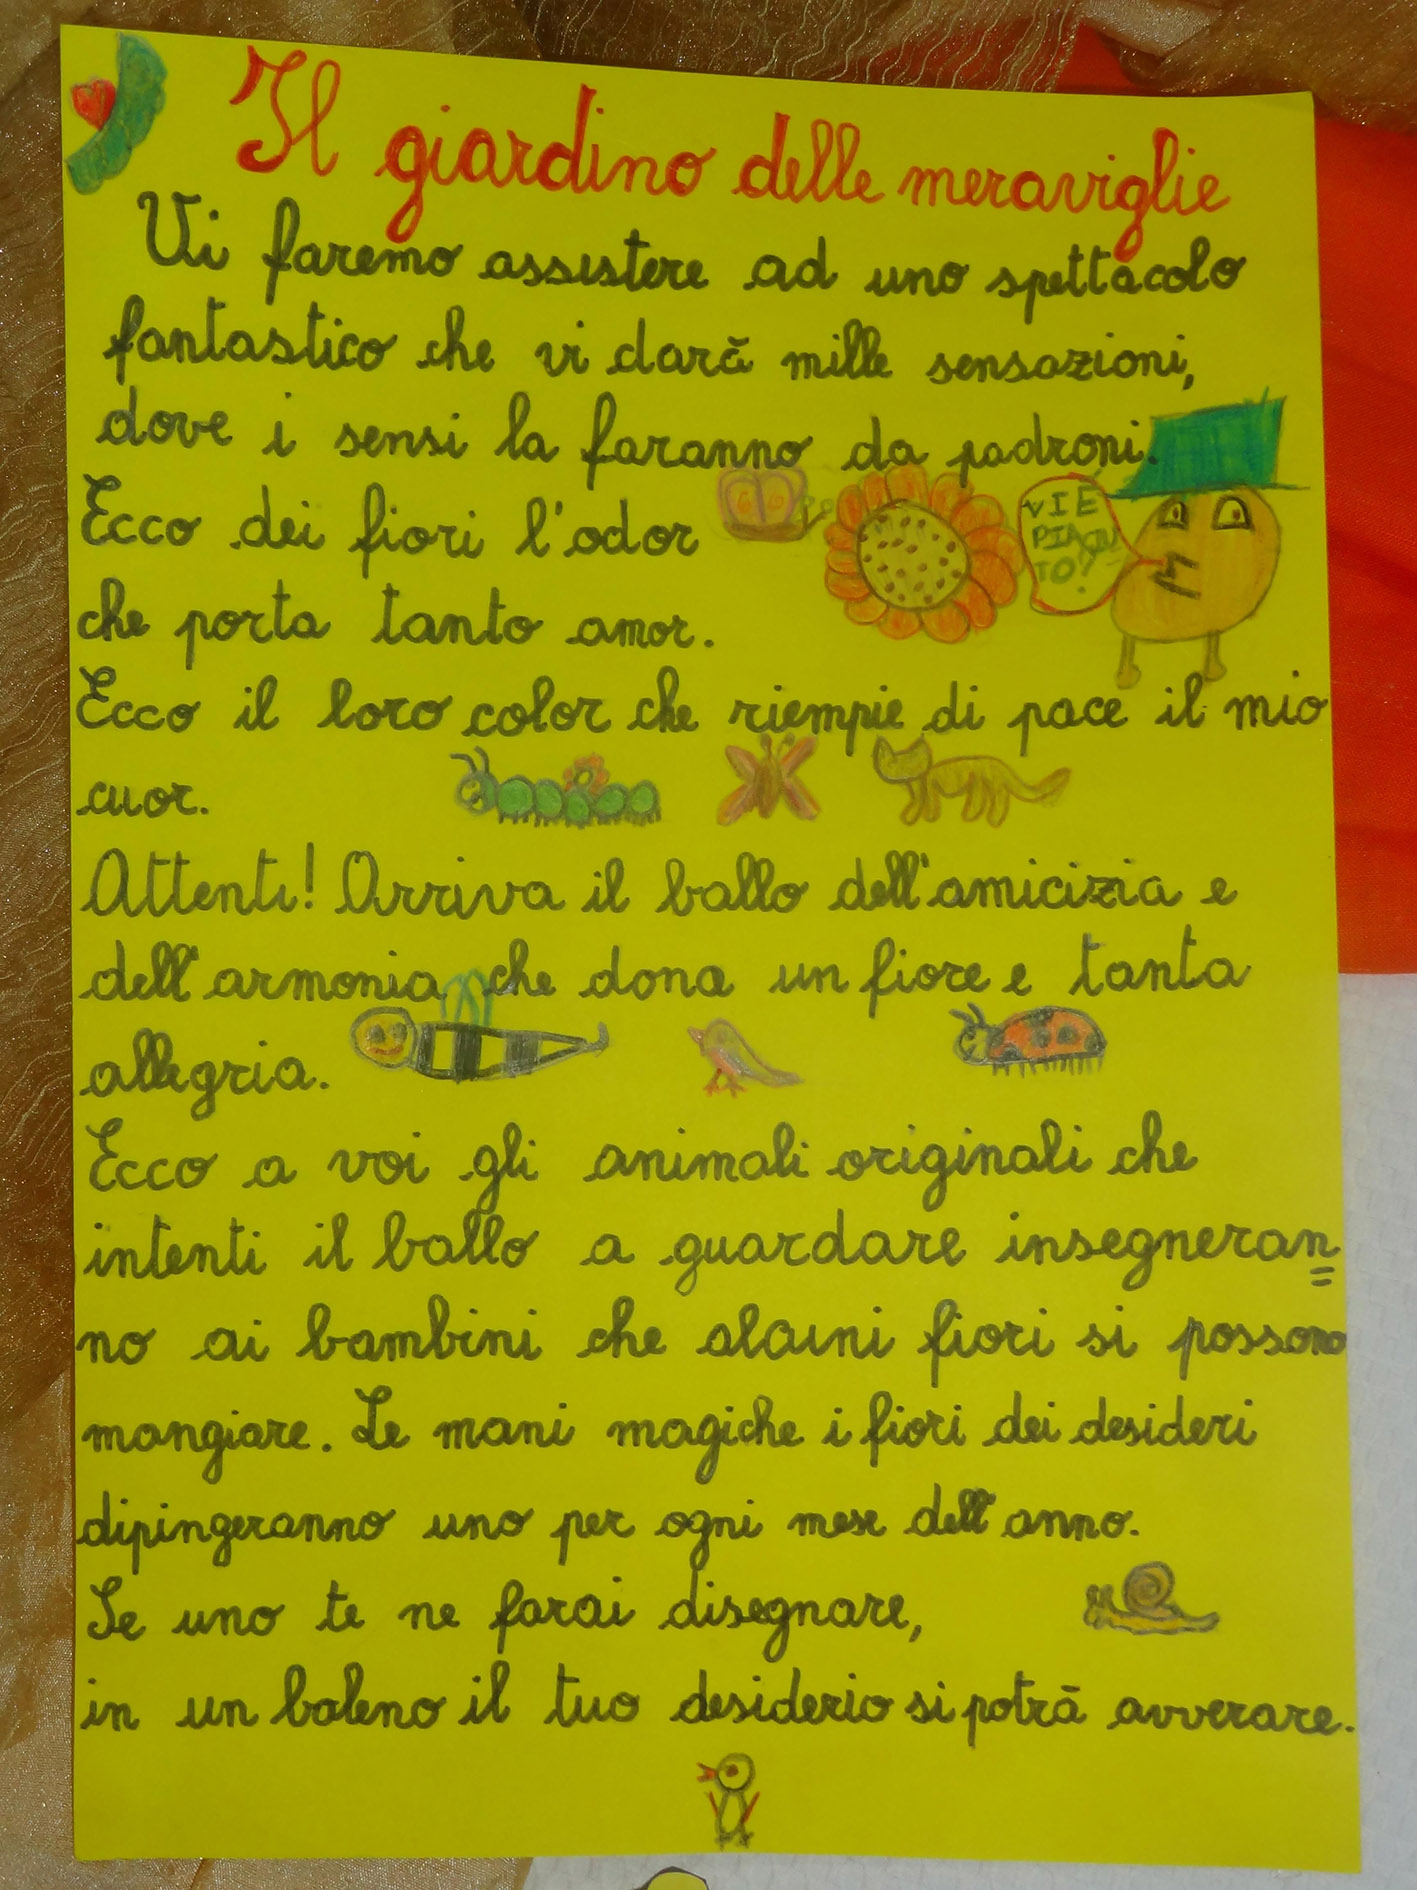 Il giardino delle meraviglie
Vi faremo assistere ad uno spettacolo
fantastico che vi darà mille sensazioni,
dove i sensi la faranno da padroni.
Ecco dei fiori l'odor
VI È
PIACIU
TO?
che porta tanto amor.
Ecco il loro color che riempie di pace il mio
cuor.
Attenti! Arriva il ballo dell'amicizia e
dell'armonia che dona un fiore e tanta
allegria.
Ecco a voi gli animali originali che
intenti il ballo a guardare insegneran=
no ai bambini che alcuni fiori si possono
mangiare. Le mani magiche i fiori dei desideri
dipingeranno uno per ogni mese dell'anno.
Se uno te ne farai disegnare,
in un baleno il tuo desiderio si potrà avverare.